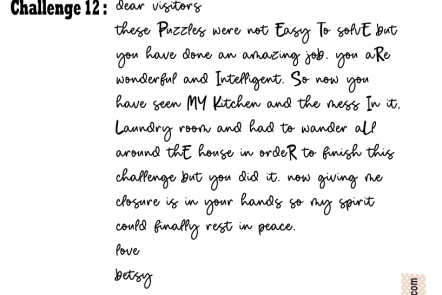 Challenge 12: dear visitors
these Puzzles were not Easy To solvE but
you have done an amazing job. you aRe
wonderful and Intelligent. So now you
have seen MY Kitchen and the mess In it,
Laundry room and had to wander aLl
around thE house in ordeR to finish this
challenge but you did it. now giving me
closure is in your hands so my spirit
could finally rest in peace.
love
betsy
com